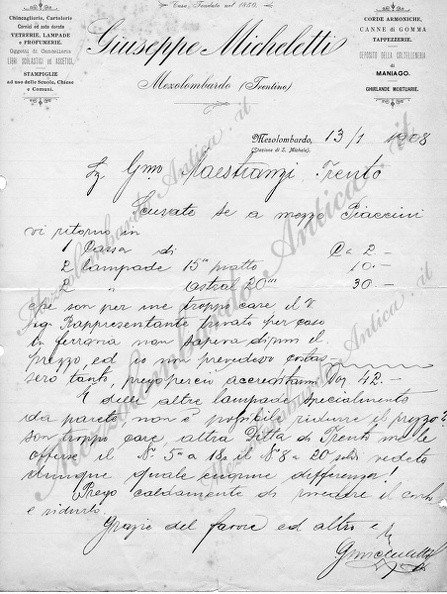 Casa fondata nel 1850.
Chincaglierie, Cartolerie
Cornici ed aste dorate
VETRERIE, LAMPADE
e PROFUMERIE.
Oggetti di Cancelleria
LIBRI SCOLASTICI ed ASCETICI.
STAMPIGLIE
ad uso delle Scuole, Chiese
e Comuni.
Giuseppe Micheletti
Mezolombardo (Trentino)
CORDE ARMONICHE,
CANNE di GOMMA
TAPPEZZERIE.
DEPOSITO DELLA COLTELLERIA
di
MANIAGO.
GHIRLANDE MORTUARIE.
Mezolombardo, 13/1 1908
(Stazione di S. Michele)
Gmo Maestranzi Trento
Scusate se a mezzo Piaccini
vi ritorno in
1 Cassa di Co 2.-
2 lampade 15''' piatto 10.-
2 " astral 20''' 30.-
che son per me troppo care il V
Rappresentante trovato per caso
in ferrovia non sapeva dirmi il
prezzo, ed io non prevedevo costas
sero tanto, prego perciò accreditarmi Cor. 42.-
E delle altre lampade specialmente
da parete non è possibile ridurre il prezzo?
son troppo care, altra Ditta di Trento me le
offerse il No 5 a 18 e il No 8 a 20 soldi vedete
dunque quale enorme differenza!
Prego caldamente di rivedere il conto
e ridurlo.
Grazie del favore ed altro e
GMicheletti
Mezolombardo Antica.it
Mezolombardo Antica.it